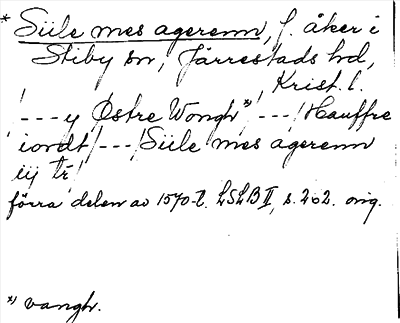 * Siile mes agerenn, f. åker i
Stiby sn, Järrestads hd,
Krist. l.
/---y Østre Wongh*) /---/ Hauffre
iordt /---/ Siile mes agerenn
iij tr/
förra delen av 1570-t. LSLB II, s. 202. orig.
*) vangh.